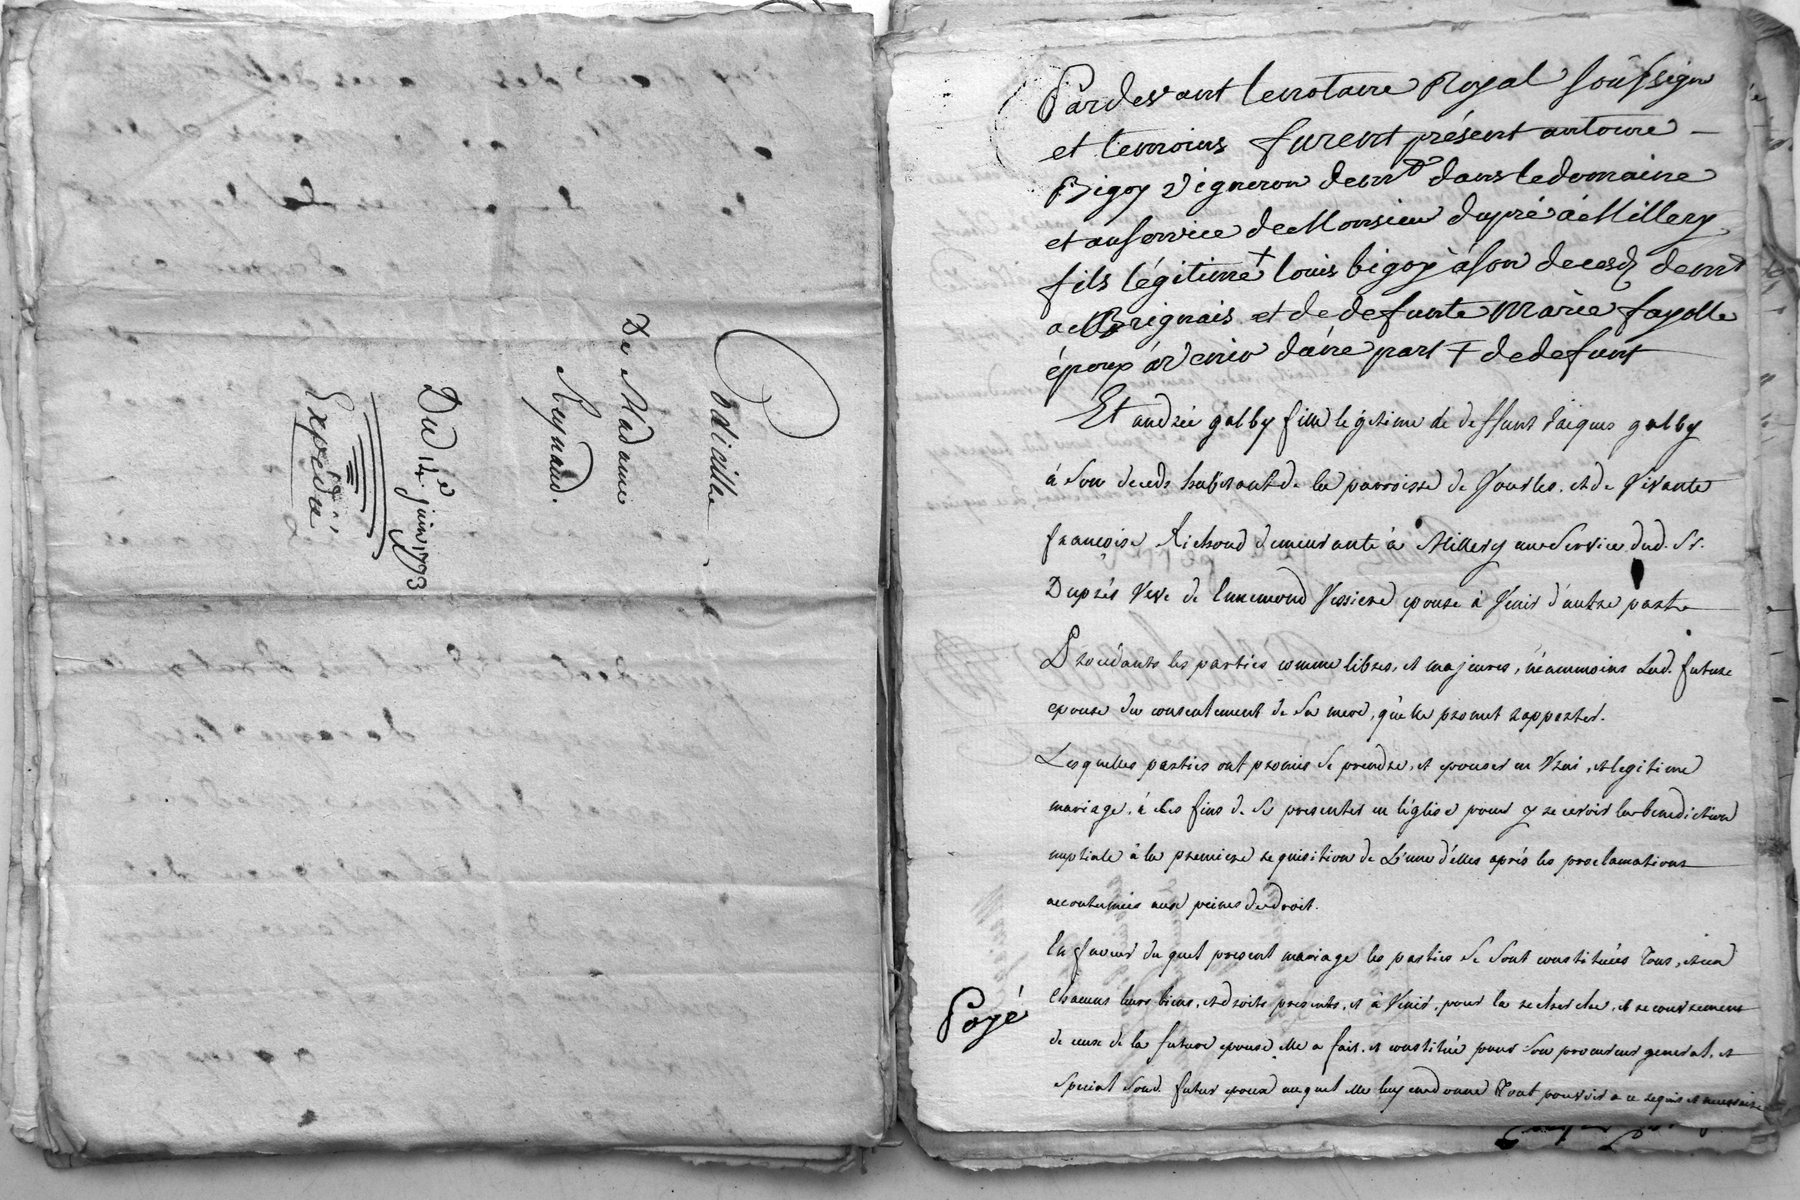 Codicille
De Madame
Reynaud.
Du 14e juin 1793
Expédié
Pardevant le notaire Royal soussigné
et temoins furent présent antoine
Bigoy vigneron demt dans le domaine
et au service de Monsieur dupré à Millery
fils légitime + louis bigoy à son deces demt
a Brignais et de defunte marie fayolle
époux àvenir d'une part + de defunt
Et andrée galby fille légitime de deffunt Jacques galby
à son deceds habitant de la parroisse de Vourles, et de Vivante
françoise Richoud demeurante à Millery au service dud. Sr.
Duprés Veve de Ennemond Vessiere epouse à Venir d'autre parte
Procedants les parties comme libres, et majeures, néammoins Lad. future
epouse du consentement de sa mere, qu'elle promet rapporter.
Lesquelles parties ont promis se prendre, et epouser en Vrai, et legitime
mariage, à ces fins de se presenter en l'église pour y recevoir la benediction
nuptiale à la premiere requisition de L'une d'elles aprés les proclamations
accoutumées aux peines de droit.
En faveur du quel present mariage les parties se sont constituées Tous, et un
Chacuns leurs biens, et droits presents, et à Venir, pour la recherche, et recouvrement
de ceux de la future epouse elle a fait, et constitué pour son procureur general, et
special Sond. futur epoux auquel elle luy en donne Tout pouvoir a ce requis et necessaire
Payé